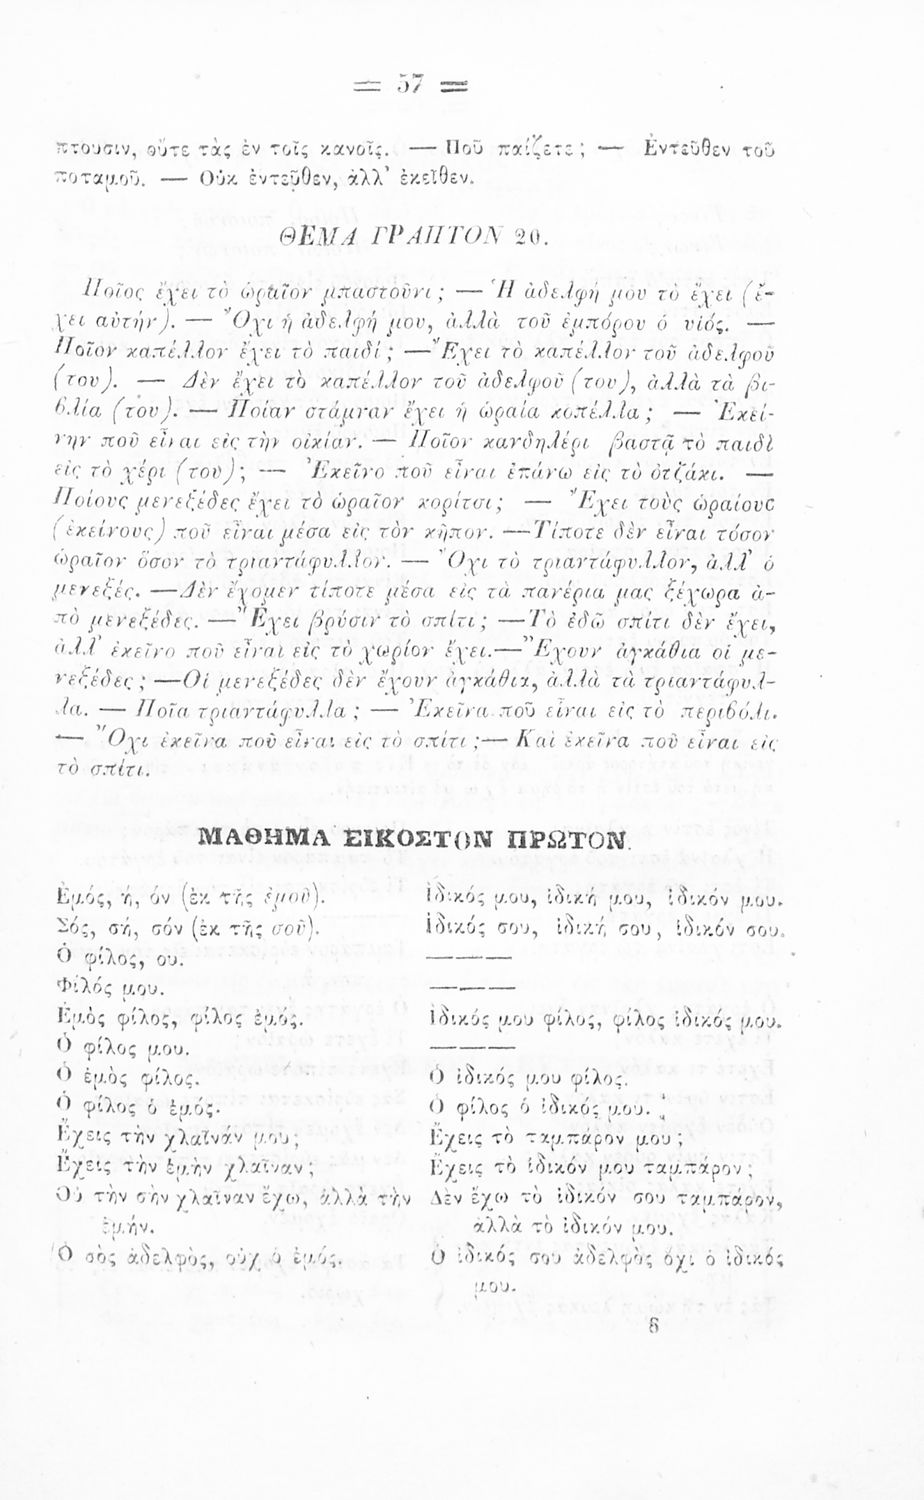 = 57 =
πτουσιν, οὔτε τὰς ἐν τοῖς κανοῖς. — Ποῦ παίζετε ; — Ἐντεῦθεν τοῦ
ποταμοῦ. — Οὐκ ἐντεῦθεν, ἀλλ’ ἐκεῖθεν.
ΘΕΜΑ ΓΡΑΠΤΟΝ 20.
Ποῖος ἔχει τὸ ὡραῖον μπαστοῦνι ; — Ἡ ἀδελφή μου τὸ ἔχει (ἔ-
χει αὐτήν). — Ὄχι ἡ ἀδελφή μου, ἀλλὰ τοῦ ἐμπόρου ὁ υἱός. —
Ποῖον καπέλλον ἔχει τὸ παιδί ; — Ἔχει τὸ καπέλλον τοῦ ἀδελφοῦ
(του). — Δὲν ἔχει τὸ καπέλλον τοῦ ἀδελφοῦ (του), ἀλλὰ τὰ βι-
βλία (του). — Ποίαν στάμναν ἔχει ἡ ὡραία κοπέλλα ; — Ἐκεί-
νην ποῦ εἶναι εἰς τὴν οἰκίαν. — Ποῖον κανδηλέρι βαστᾷ τὸ παιδὶ
εἰς τὸ χέρι (του) ; — Ἐκεῖνο ποῦ εἶναι ἐπάνω εἰς τὸ ὀτζάκι. —
Ποίους μενεξέδες ἔχει τὸ ὡραῖον κορίτσι ; — Ἔχει τοὺς ὡραίους
(ἐκείνους) ποῦ εἶναι μέσα εἰς τὸν κῆπον. — Τίποτε δὲν εἶναι τόσον
ὡραῖον ὅσον τὸ τριαντάφυλλον. — Ὄχι τὸ τριαντάφυλλον, ἀλλ’ ὁ
μενεξές. — Δὲν ἔχομεν τίποτε μέσα εἰς τὰ πανέρια μας ξέχωρα ἀ-
πὸ μενεξέδες. — Ἔχει βρύσιν τὸ σπίτι ; — Τὸ ἐδῶ σπίτι δὲν ἔχει,
ἀλλ’ ἐκεῖνο ποῦ εἶναι εἰς τὸ χωρίον ἔχει. — Ἔχουν ἀγκάθια οἱ με-
νεξέδες ; — Οἱ μενεξέδες δὲν ἔχουν ἀγκάθια, ἀλλὰ τὰ τριαντάφυλ-
λα. — Ποῖα τριαντάφυλλα ; — Ἐκεῖνα ποῦ εἶναι εἰς τὸ περιβόλι.
— Ὄχι ἐκεῖνα ποῦ εἶναι εἰς τὸ σπίτι ; — Καὶ ἐκεῖνα ποῦ εἶναι εἰς
τὸ σπίτι.
ΜΑΘΗΜΑ ΕΙΚΟΣΤΟΝ ΠΡΩΤΟΝ.
Ἐμός, ή, όν (ἐκ τῆς ἐμοῦ). Ἰδικός μου, ἰδική μου, ἰδικόν μου.
Σός, σή, σόν (ἐκ τῆς σοῦ). Ἰδικός σου, ἰδική σου, ἰδικόν σου.
Ὁ φίλος, ου. ———
Φίλός μου. ———
Ἐμὸς φίλος, φίλος ἐμός. Ἰδικός μου φίλος, φίλος ἰδικός μου.
Ὁ φίλος μου. ———
Ὁ ἐμὸς φίλος. Ὁ ἰδικός μου φίλος.
Ὁ φίλος ὁ ἐμός. Ὁ φίλος ὁ ἰδικός μου.
Ἔχεις τὴν χλαῖνάν μου ; Ἔχεις τὸ ταμπάρον μου ;
Ἔχεις τὴν ἐμὴν χλαῖναν ; Ἔχεις τὸ ἰδικόν μου ταμπάρον ;
Οὐ τὴν σὴν χλαῖναν ἔχω, ἀλλὰ τὴν Δὲν ἔχω τὸ ἰδικόν σου ταμπάρον,
ἐμήν. ἀλλὰ τὸ ἰδικόν μου.
Ὁ σὸς ἀδελφὸς, οὐχ ὁ ἐμός. Ὁ ἰδικός σου ἀδελφὸς ὄχι ὁ ἰδικός
μου.
8